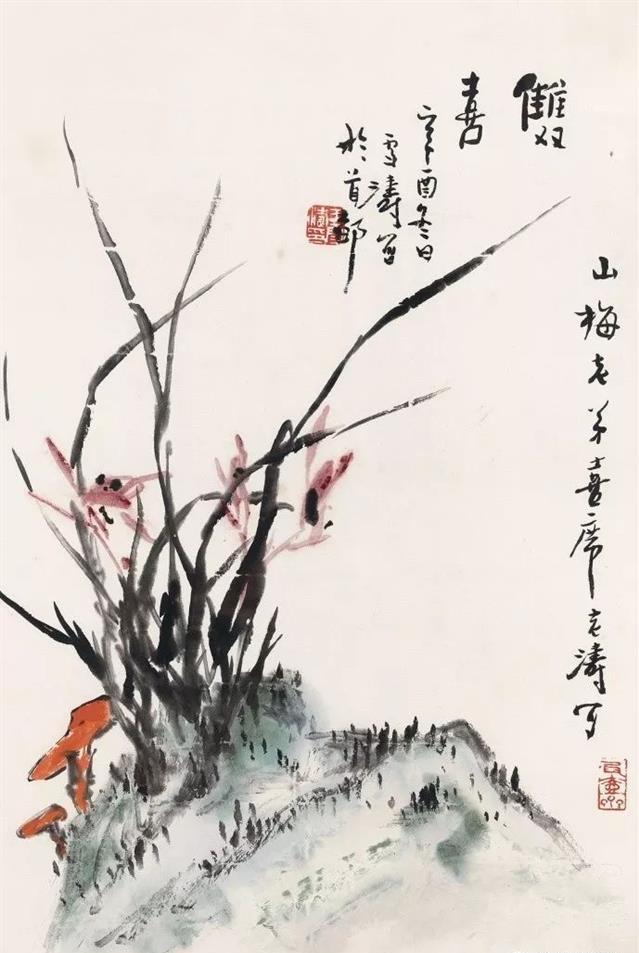 雙喜
辛酉冬日
雪濤写
於首都
山梅老弟喜席老濤写